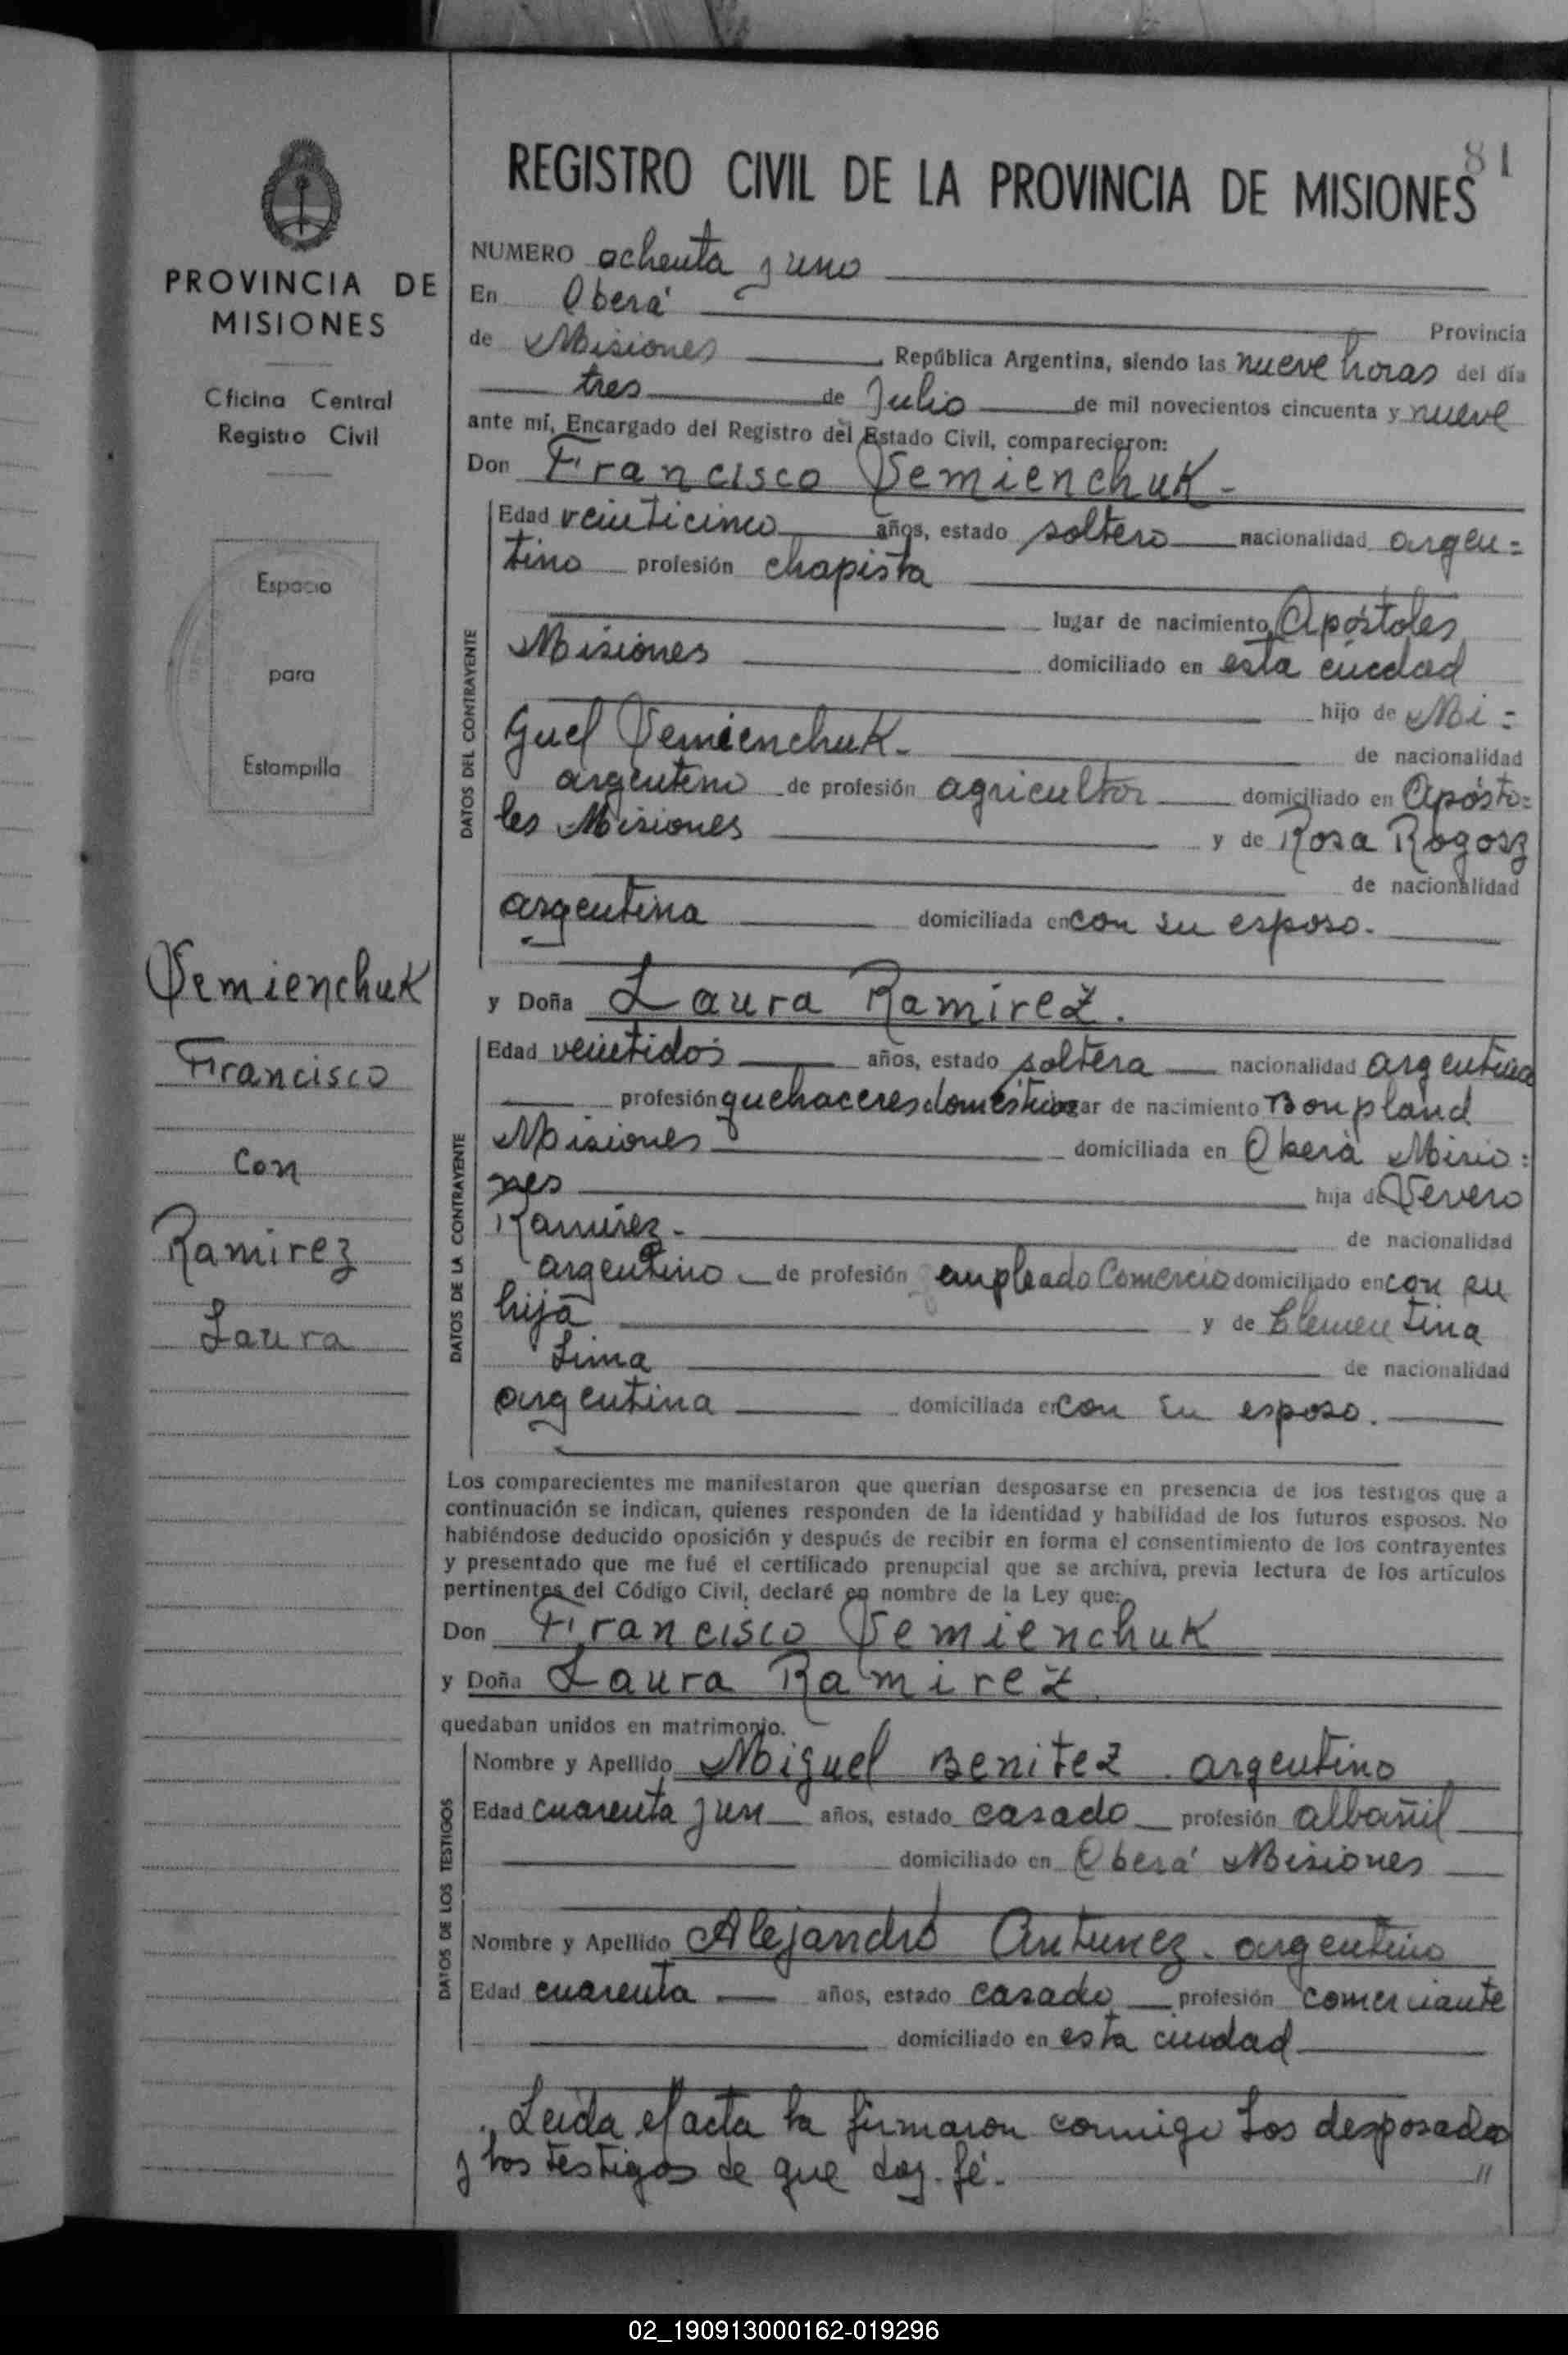 81
REGISTRO CIVIL DE LA PROVINCIA DE MISIONES
PROVINCIA DE
MISIONES
Oficina Central
Registro Civil
Espacio
para
Estampilla
Semienchuk
Francisco
con
Ramirez
Laura
NUMERO ochenta y uno
En Oberá Provincia
de Misiones República Argentina, siendo las nueve horas del día
tres de Julio de mil novecientos cincuenta y nueve
ante mí, Encargado del Registro del Estado Civil, comparecieron:
Don Francisco Semienchuk -
DATOS DEL CONTRAYENTE
Edad veinticinco años, estado soltero nacionalidad argen=
tino profesión chapista
lugar de nacimiento Apóstoles
Misiones domiciliado en esta ciudad
hijo de Mi=
guel Semienchuk - de nacionalidad
argentino de profesión agricultor domiciliado en Apósto=
les Misiones y de Rosa Rogosz
de nacionalidad
argentina domiciliada en con su esposo.
y Doña Laura Ramirez.
DATOS DE LA CONTRAYENTE
Edad veintidos años, estado soltera nacionalidad argentina
profesión quehaceres domésticos lugar de nacimiento Bonpland
Misiones domiciliada en Oberá Misio=
nes hija de Severo
Ramirez - de nacionalidad
argentino de profesión empleado Comercio domiciliado en con su
hija y de Clementina
Lima de nacionalidad
argentina domiciliada en con su esposo.
Los comparecientes me manifestaron que querían desposarse en presencia de los testigos que a
continuación se indican, quienes responden de la identidad y habilidad de los futuros esposos. No
habiéndose deducido oposición y después de recibir en forma el consentimiento de los contrayentes
y presentado que me fué el certificado prenupcial que se archiva, previa lectura de los artículos
pertinentes del Código Civil, declaré en nombre de la Ley que:
Don Francisco Semienchuk
y Doña Laura Ramirez.
quedaban unidos en matrimonio.
DATOS DE LOS TESTIGOS
Nombre y Apellido Miguel Benitez. argentino
Edad cuarenta y un años, estado casado profesión albañil
domiciliado en Oberá Misiones
Nombre y Apellido Alejandro Antunez. argentino
Edad cuarenta años, estado casado profesión comerciante
domiciliado en esta ciudad
Leida el acta la firmaron conmigo los desposados
y los testigos de que doy fé. //
02_190913000162-019296